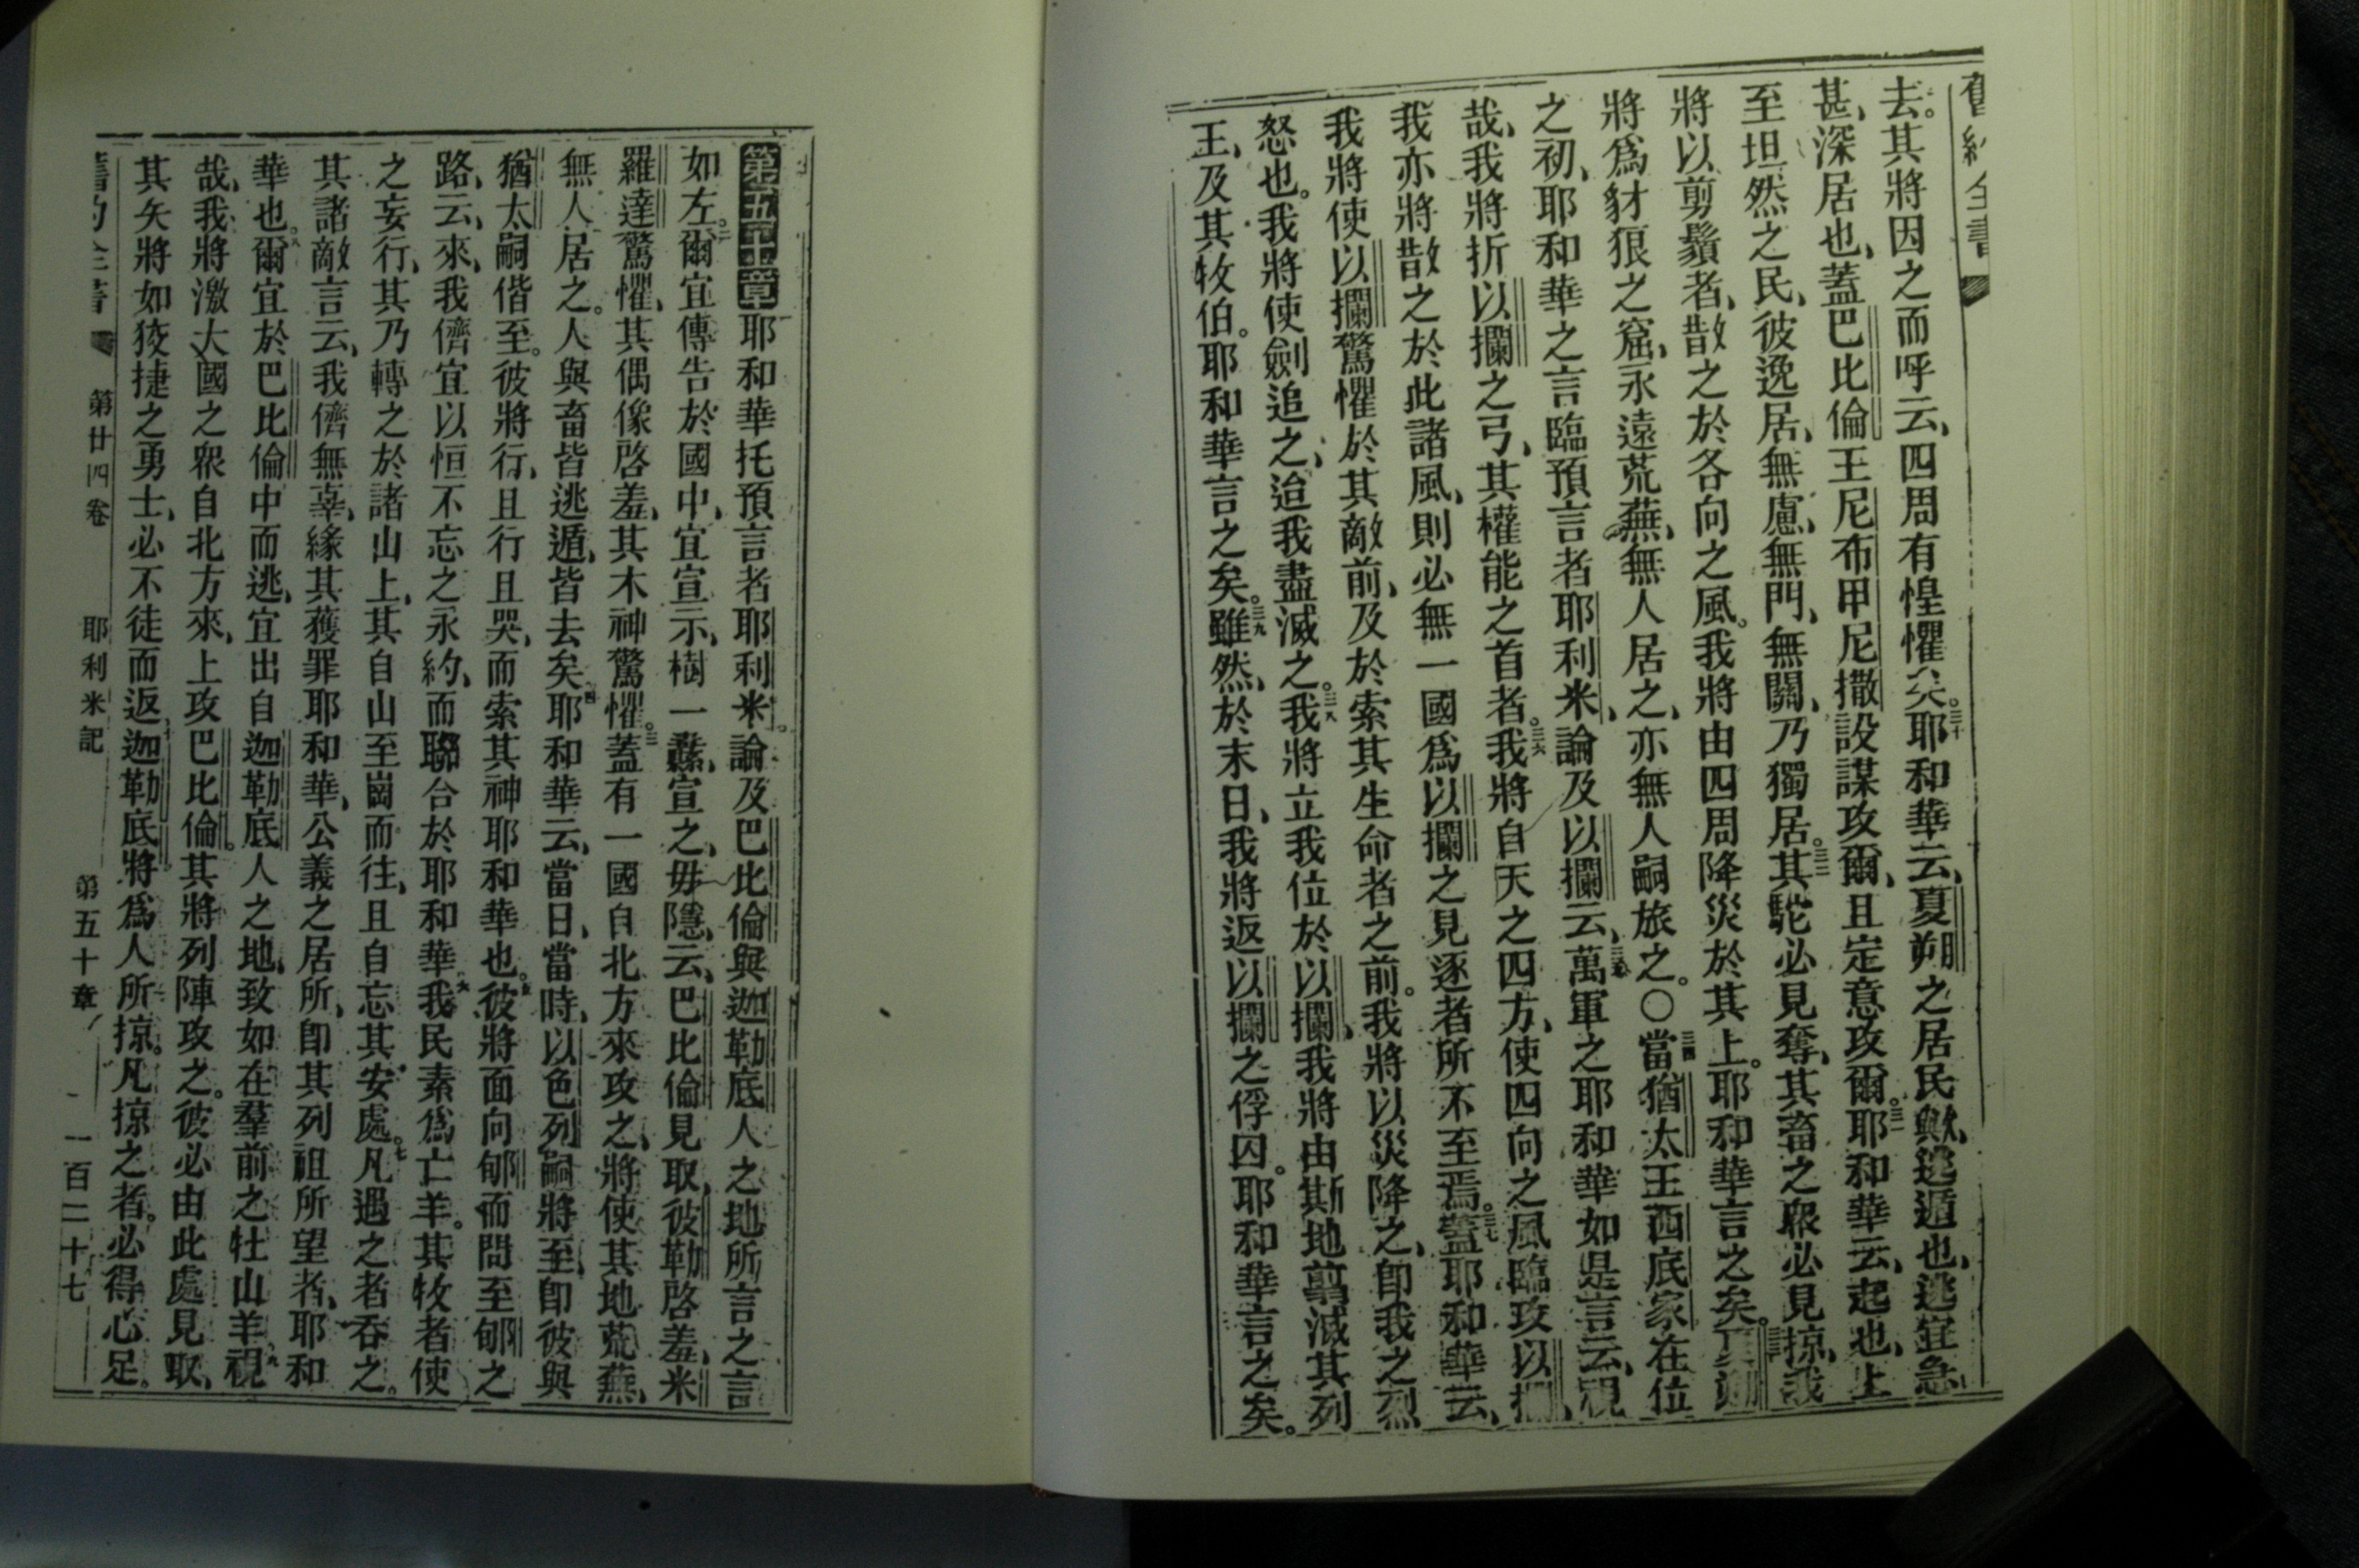 舊約全書
去。其將因之而呼云、四周有惶懼矣。三十耶和華云、夏朔之居民歟、逃遁也、逃宜急
甚、深居也、蓋巴比倫王尼布甲尼撒設謀攻爾、且定意攻爾。三一耶和華云、起也、上
至坦然之民、彼逸居、無慮、無門、無關、乃獨居。三二其駝必見奪、其畜之眾必見掠、我
將以剪鬚者、散之於各向之風。我將由四周降災於其上。耶和華言之矣。三三夏朔
將爲豺狼之窟、永遠荒蕪、無人居之、亦無人嗣旅之。〇三四當猶太王西底家在位
之初、耶和華之言臨預言者耶利米、論及以攔云、三五萬軍之耶和華如是言云、視
哉、我將折以攔之弓、其權能之首者。三六我將自天之四方、使四向之風臨攻以攔、
我亦將散之於此諸風、則必無一國爲以攔之見逐者所不至焉。三七蓋耶和華云、
我將使以攔驚懼於其敵前、及於索其生命者之前。我將以災降之、卽我之烈
怒也。我將使劍追之、迨我盡滅之。三八我將立我位於以攔、我將由斯地翦滅其列
王、及其牧伯。耶和華言之矣。三九雖然、於末日、我將返以攔之俘囚。耶和華言之矣。
第五十章 耶和華托預言者耶利米。論及巴比倫與迦勒底人之地所言之言
如左。二爾宜傳告於國中、宜宣示、樹一纛、宣之、毋隱、云、巴比倫見取、彼勒啓羞、米
羅達驚懼、其偶像啓羞、其木神驚懼。三蓋有一國自北方來攻之、將使其地荒蕪、
無人居之。人與畜皆逃遁、皆去矣。四耶和華云、當日、當時、以色列嗣將至、卽彼與
猶太嗣偕至。彼將行、且行且哭、而索其神耶和華也。五彼將面向郇而問至郇之
路、云、來、我儕宜以恒不忘之永約、而聯合於耶和華。六我民素爲亡羊。其牧者使
之妄行、其乃轉之於諸山上、其自山至崗而往、且自忘其安處。七凡遇之者吞之。
其諸敵言云、我儕無辜、緣其獲罪耶和華、公義之居所、卽其列祖所望者、耶和
華也。八爾宜於巴比倫中而逃、宜出自迦勒底人之地、致如在羣前之牡山羊。九視
哉、我將激大國之眾自北方來、上攻巴比倫。其將列陣攻之。彼必由此處見取、
其矢將如狡捷之勇士、必不徒而返。十迦勒底將爲人所掠。凡掠之者。必得心足。
舊約全書 第廿四卷 耶利米記 第五十章 一百二十七